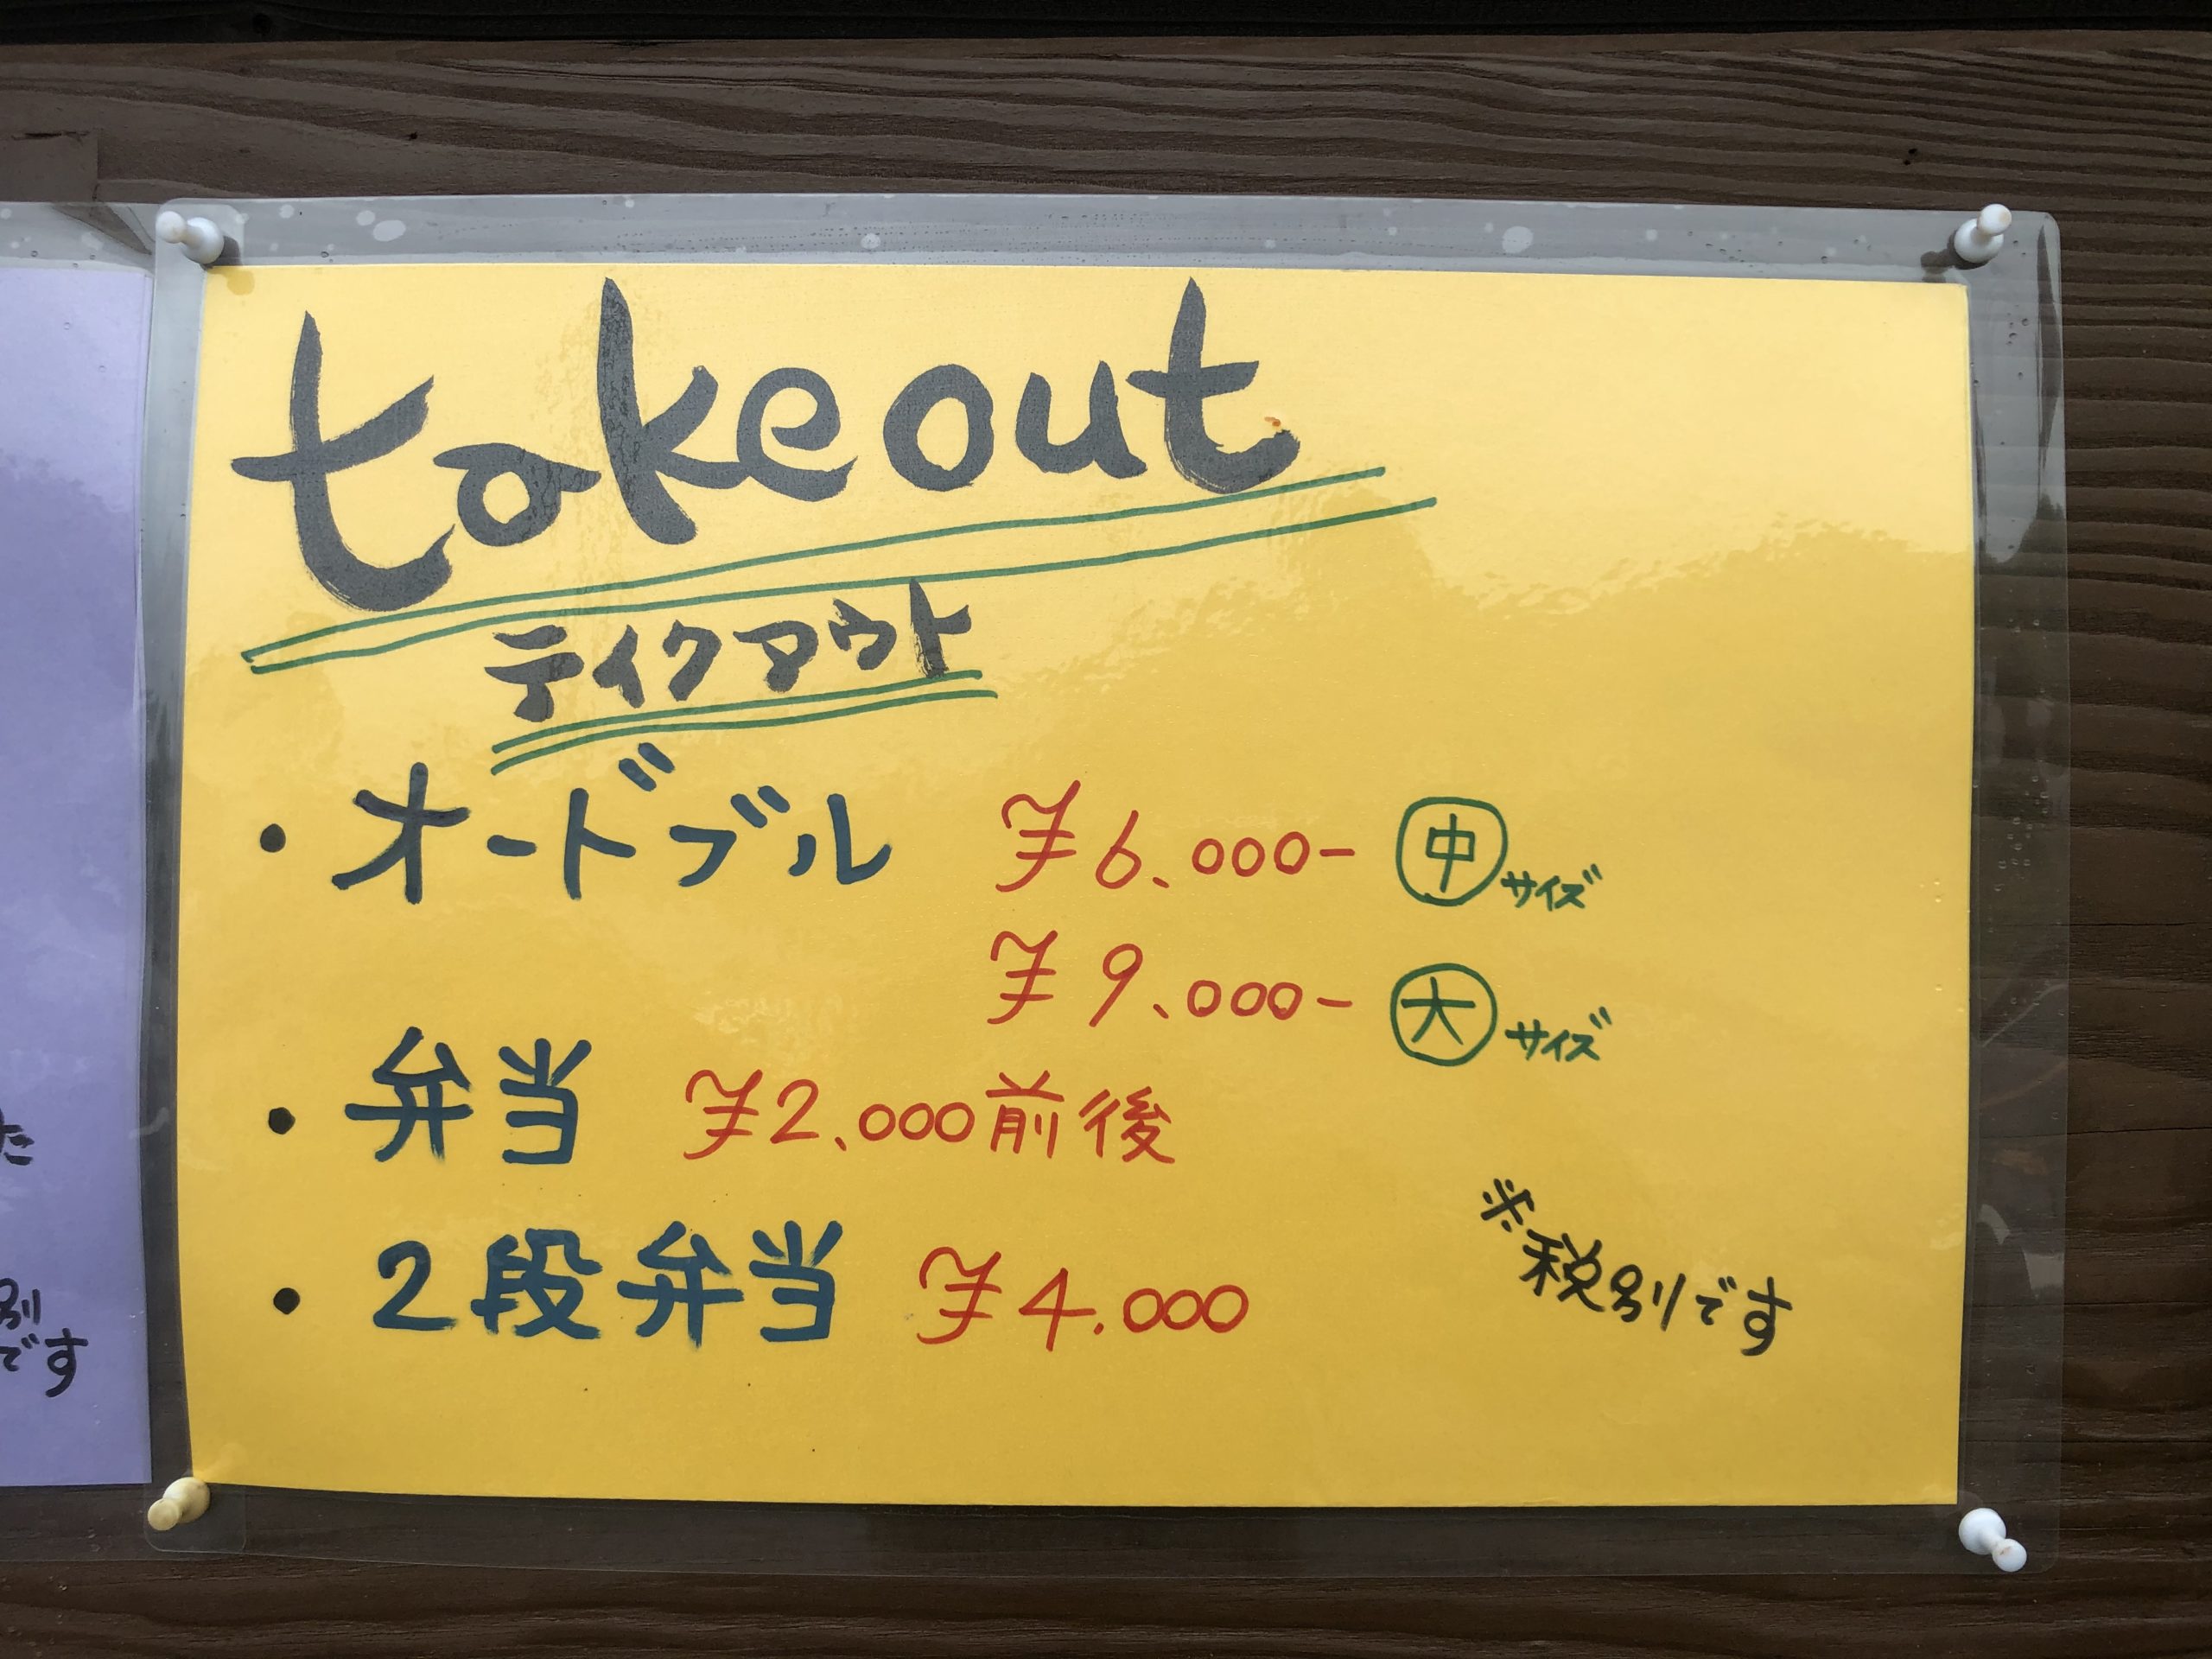 takeout
テイクアウト
・オードブル ¥6、000- 中サイズ
¥9、000- 大サイズ
・弁当 ¥2、000前後
・2段弁当 ¥4.000
※税別です
た
別
です